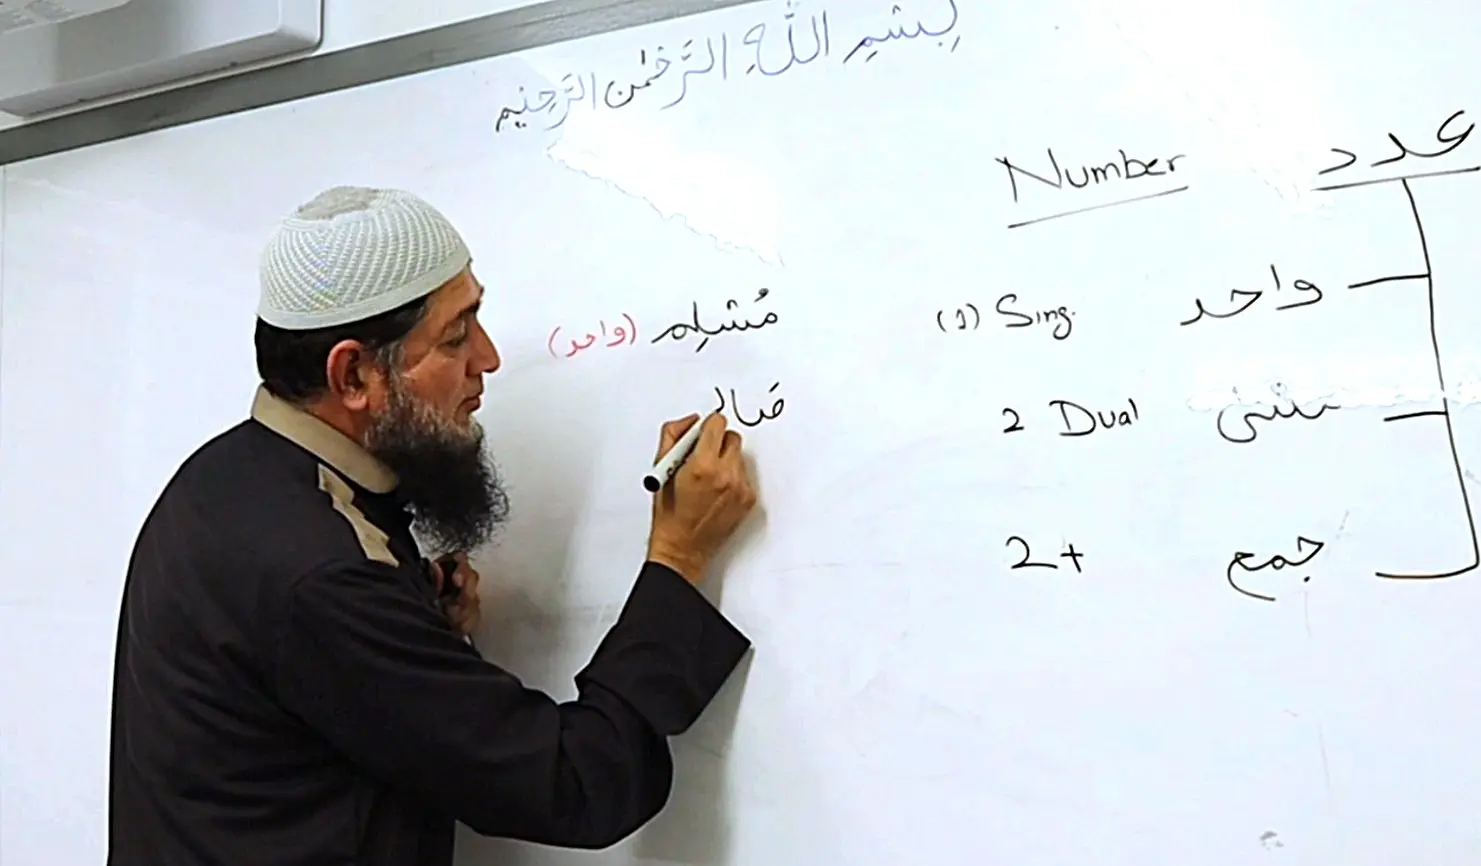 بِسْمِ اللَّهِ الرَّحْمٰنِ الرَّحِيْمِ
Number عدد
(1) Sing. واحد
2 Dual مثنى
2+ جمع
مُسْلِم (واحد)
صَالـ